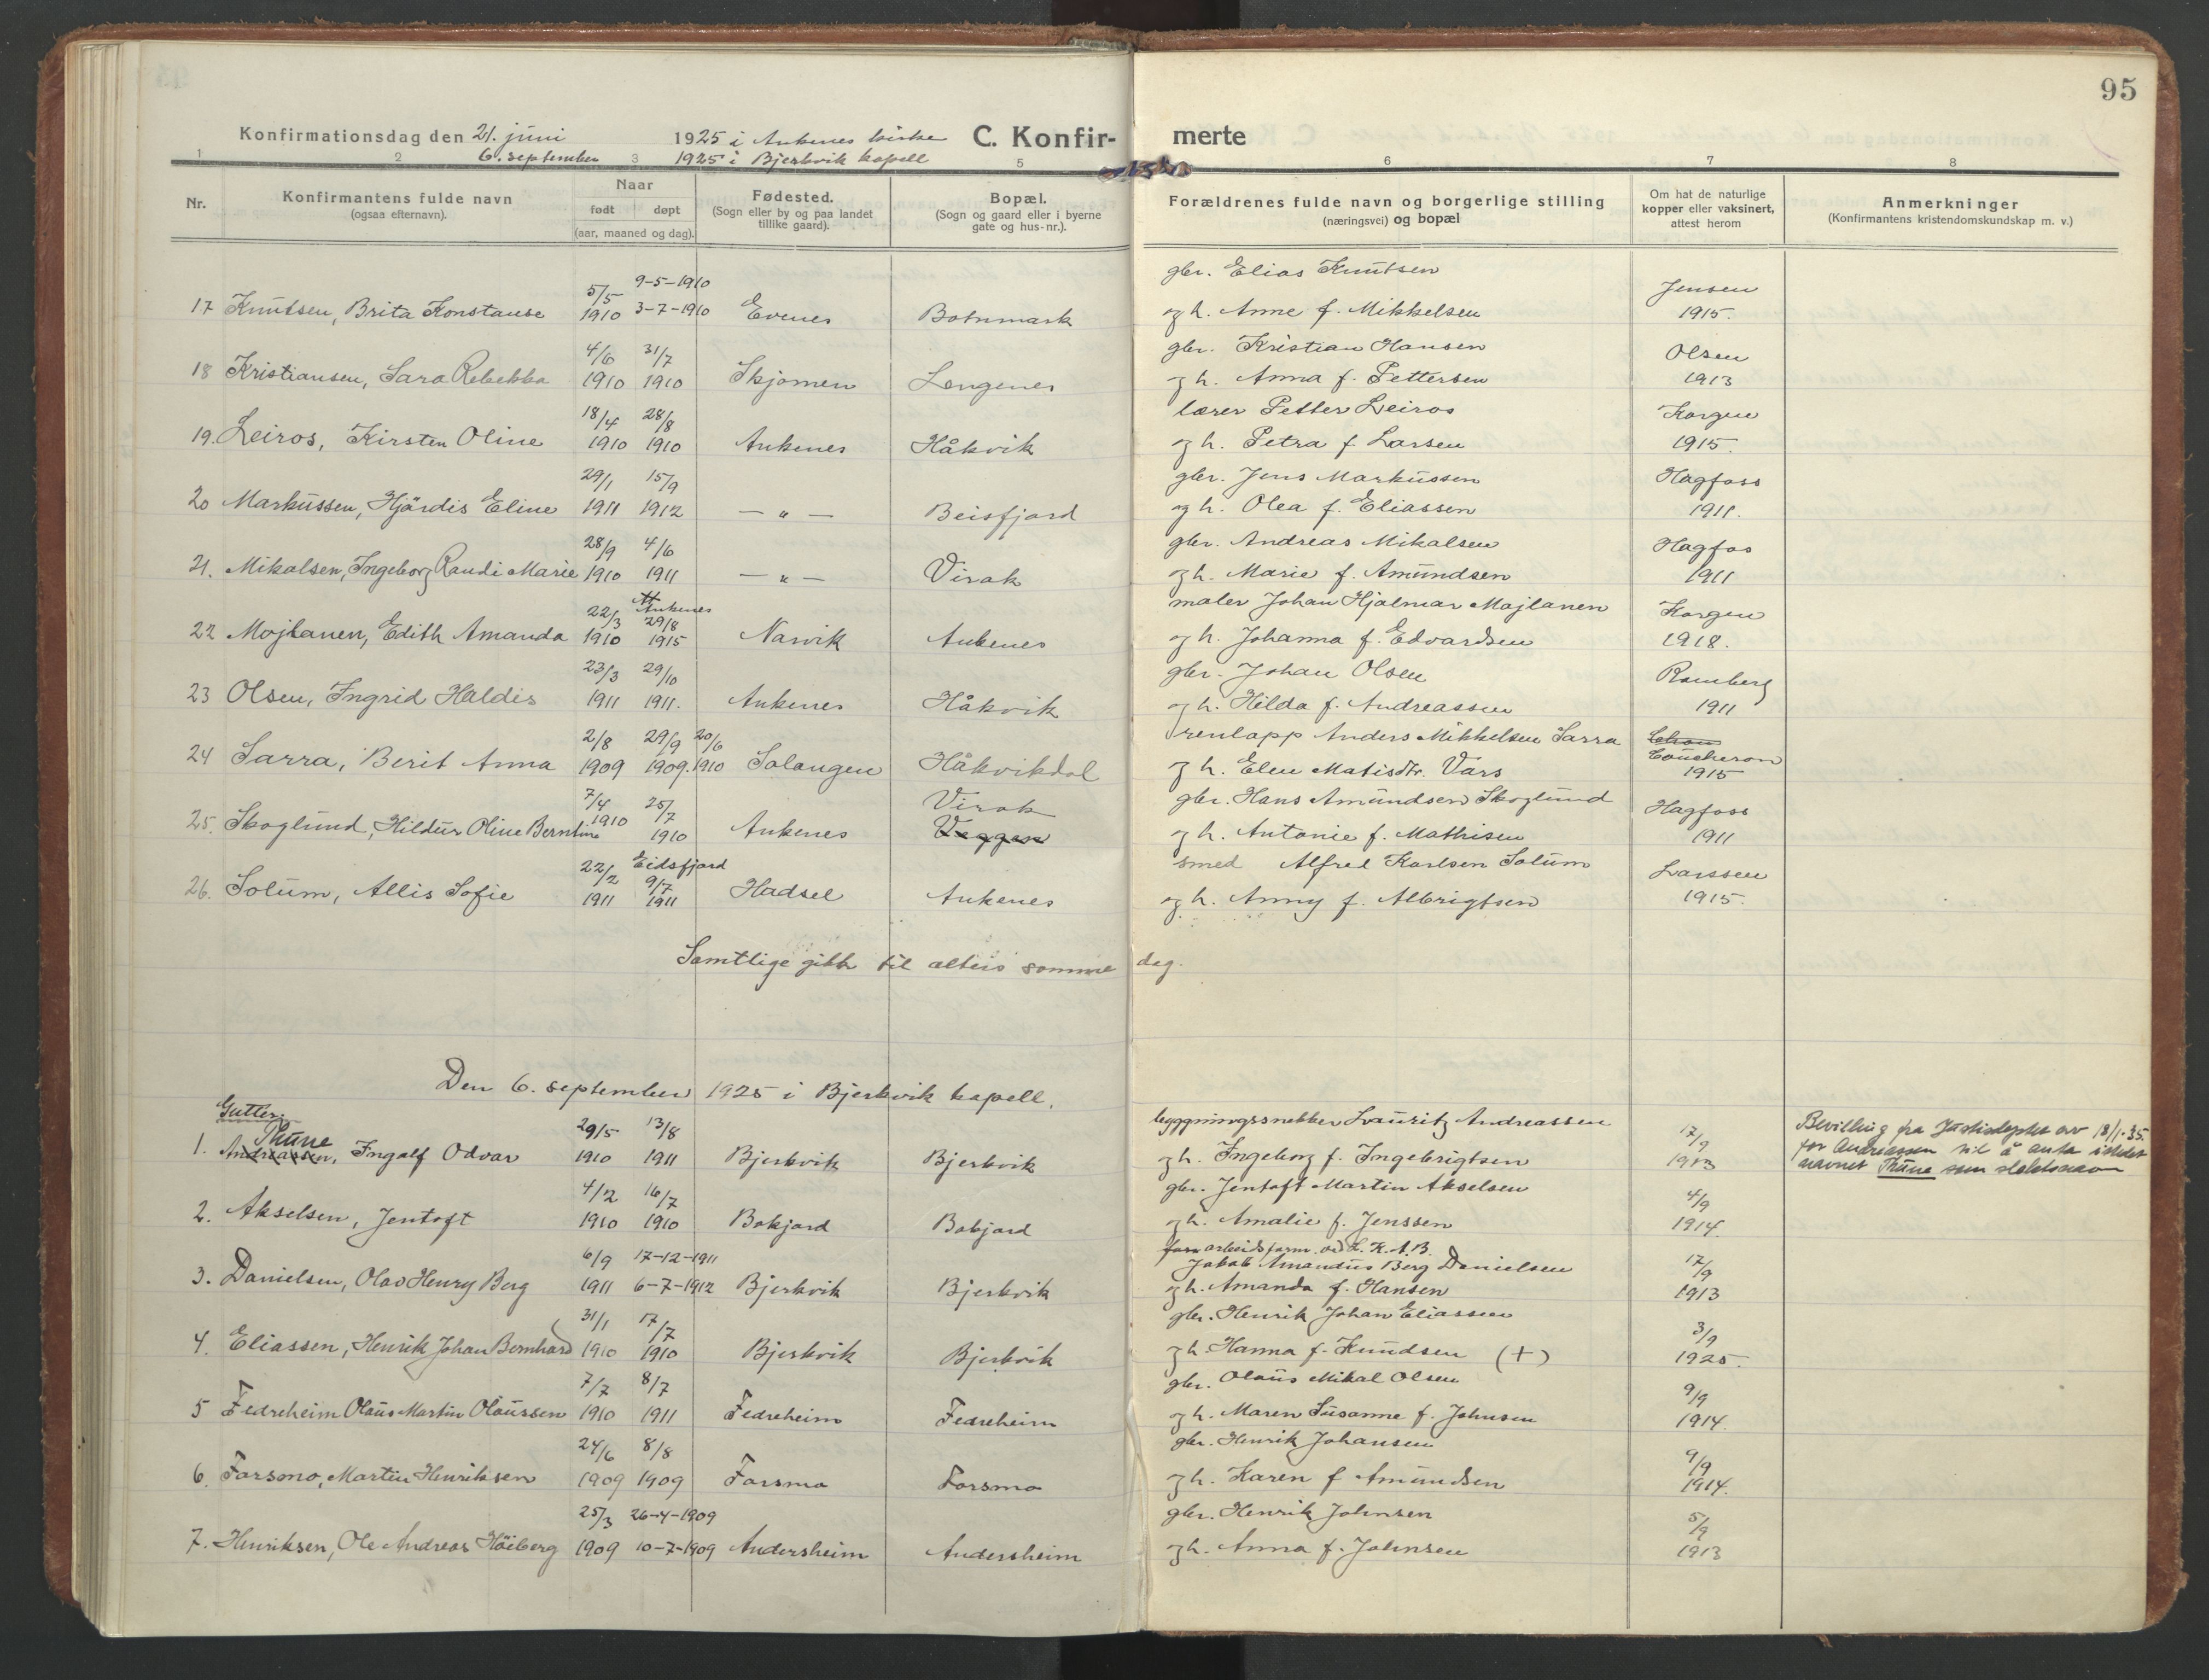 95
Konfirmationsdag den 21. juni 1925 i Ankenes kirke C. Konfirmerte
6. september 1925 i Bjerkvik kapell
1 2 3 5 6 7 8
Nr. Konfirmantens fulde navn (ogsaa efternavn). Naar født døpt (aar, maaned og dag). Fødested. (Sogn eller by og paa landet tillike gaard). Bopæl. (Sogn og gaard eller i byerne gate og hus-nr.). Forældrenes fulde navn og borgerlige stilling (næringsvei) og bopæl Om hat de naturlige kopper eller vaksinert, attest herom Anmerkninger (Konfirmantens kristendomskundskap m. v.)
9-5-1910 gbr. Elias Knutsen
17 Knutsen, Brita Konstanse 5/5 1910 3-7-1910 Evenes Botnmark og h. Anne f. Mikkelsen Jensen 1915.
4/6 31/7 gbr. Kristian Hansen
18 Kristiansen, Sara Rebekka 1910 1910 Skjomen Lengenes og h. Anna f. Pettersen Olsen 1913
18/4 28/8 lærer Petter Leiros
19. Leiros, Kirsten Oline 1910 1910 Ankenes Håkvik og h. Petra f. Larsen Korgen 1915.
29/1 15/9 gbr. Jens Markussen
20 Markussen, Hjärdis Eline 1911 1912 — " — Beisfjord og h. Olea f. Eliassen Hagfoss 1911.
28/9 4/6 gbr. Andreas Mikalsen
21. Mikalsen, Ingeborg Randi Marie 1910 1911 — " — Virak og h. Marie f. Amundsen Hagfos 1911
22/3 Ankenes 29/8 maler Johan Hjalmar Majlanen
22 Mojlanen, Edith Amanda 1910 1915 Narvik Ankenes og h. Johanna f. Edvardsen Korgen 1918.
23/3 29/10 gbr. Johan Olsen
23 Olsen, Ingrid Haldis 1911 1911. Ankenes Håkvik og h. Hilda f. Andreassen Romberg 1911
2/8 29/9 20/6 renlapp Anders Mikkelsen Sarra
24 Sarra, Berit Anna 1909 1909. 1910 Salangen Håkvikdal og h. Elen Matisdtr. Vars Coucheron 1915
7/4 25/7 Virak gbr. Hans Amundsen Skoglund
25. Skoglund, Hildur Oline Berntine 1910 1910 Ankenes Veggen og h. Antonie f. Mathisen Hagfoss 1911
22/2 Eidsfjord 9/7 smed Alfred Karlsen Solum
26. Solum, Allis Sofie 1911 1911 Hadsel Ankenes og h. Anny f. Albrigtsen Larssen 1915.
Samtlige gikk til alters samme dag.
Den 6. september 1925 i Bjerkvik kapell.
Gutter.
Thune 29/5 13/8 bygningssnekker Lauritz Andreassen
1. Andreassen, Ingolf Odvar 1910 1911 Bjerkvik Bjerkvik og h. Ingeborg f. Ingebrigtsen 17/9 1913
Bevilling fra Justisdeptet av 18/1-35
for Andreassen til å anta istedet
navnet Thune som slektsnavn
4/2 16/7 gbr. Jentoft Martin Akselsen
2. Akselsen, Jentoft 1910 1910 Bokjord Bokjord og h. Amalie f. Jenssen 4/9 1914.
6/9 17-12-1911 arbeidsform. ved L. K. A. B.
Jakob Amandus Berg Danielsen
3. Danielsen, Olav Henry Berg 1911 6-7-1912 Bjerkvik Bjerkvik og h. Amanda f. Hansen 17/9 1913
31/1 17/7 gbr. Henrik Johan Eliassen
4. Eliassen, Henrik Johan Bernhard 1910 1910 Bjerkvik Bjerkvik og h. Hanna f. Knudsen (+) 3/9 1925.
7/7 8/7 gbr. Olaus Mikal Olsen
5 Fedreheim Olaus Martin Olaussen 1910 1911 Fedreheim Fedreheim og h. Maren Susanne f. Johnsen 9/9 1914.
24/6 8/8 gbr. Henrik Johansen
6. Forsmo, Martin Henriksen 1909 1909 Forsmo Forsmo og h. Karen f Amundsen 9/9 1914.
25/3 26-4-1909 gbr. Henrik Johnsen
7. Henriksen, Ole Andreas Höiberg 1909 10-7-1909 Andersheim Andersheim og h. Anna f. Johnsen 5/9 1913